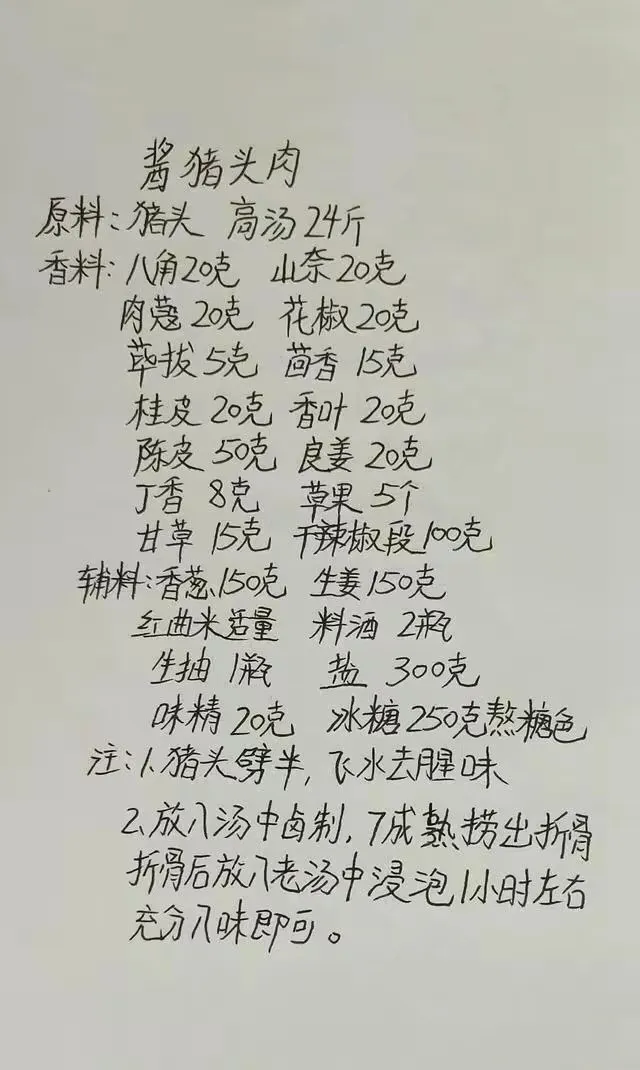 酱猪头肉
原料:猪头 高汤24斤
香料:八角20克 山奈20克
肉蔻20克 花椒20克
荜拔5克 茴香15克
桂皮20克 香叶20克
陈皮50克 良姜20克
丁香8克 草果5个
甘草15克 干辣椒段100克
辅料:香葱150克 生姜150克
红曲米适量 料酒2瓶
生抽1瓶 盐300克
味精20克 冰糖250克熬糖色
注:1.猪头劈半,飞水去腥味
2.放入汤中卤制,7成熟捞出折骨
折骨后放入老汤中浸泡1小时左右
充分入味即可。